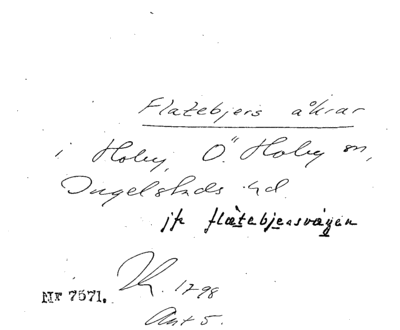 Flatebjers åkrar
i Hoby, Ö. Hoby sn,
Ingelstads hd
jfr flätebjersvägen
1798
NR 7571.
Akt 5.